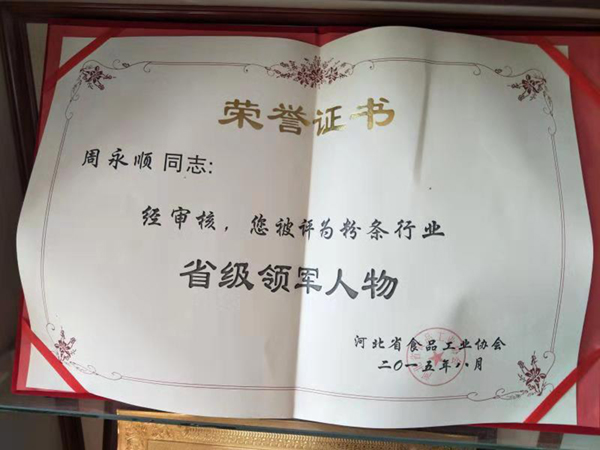 荣誉证书
周永顺 同志:
经审核，您被评为粉条行业
省级领军人物
河北省食品工业协会
二〇一五年八月